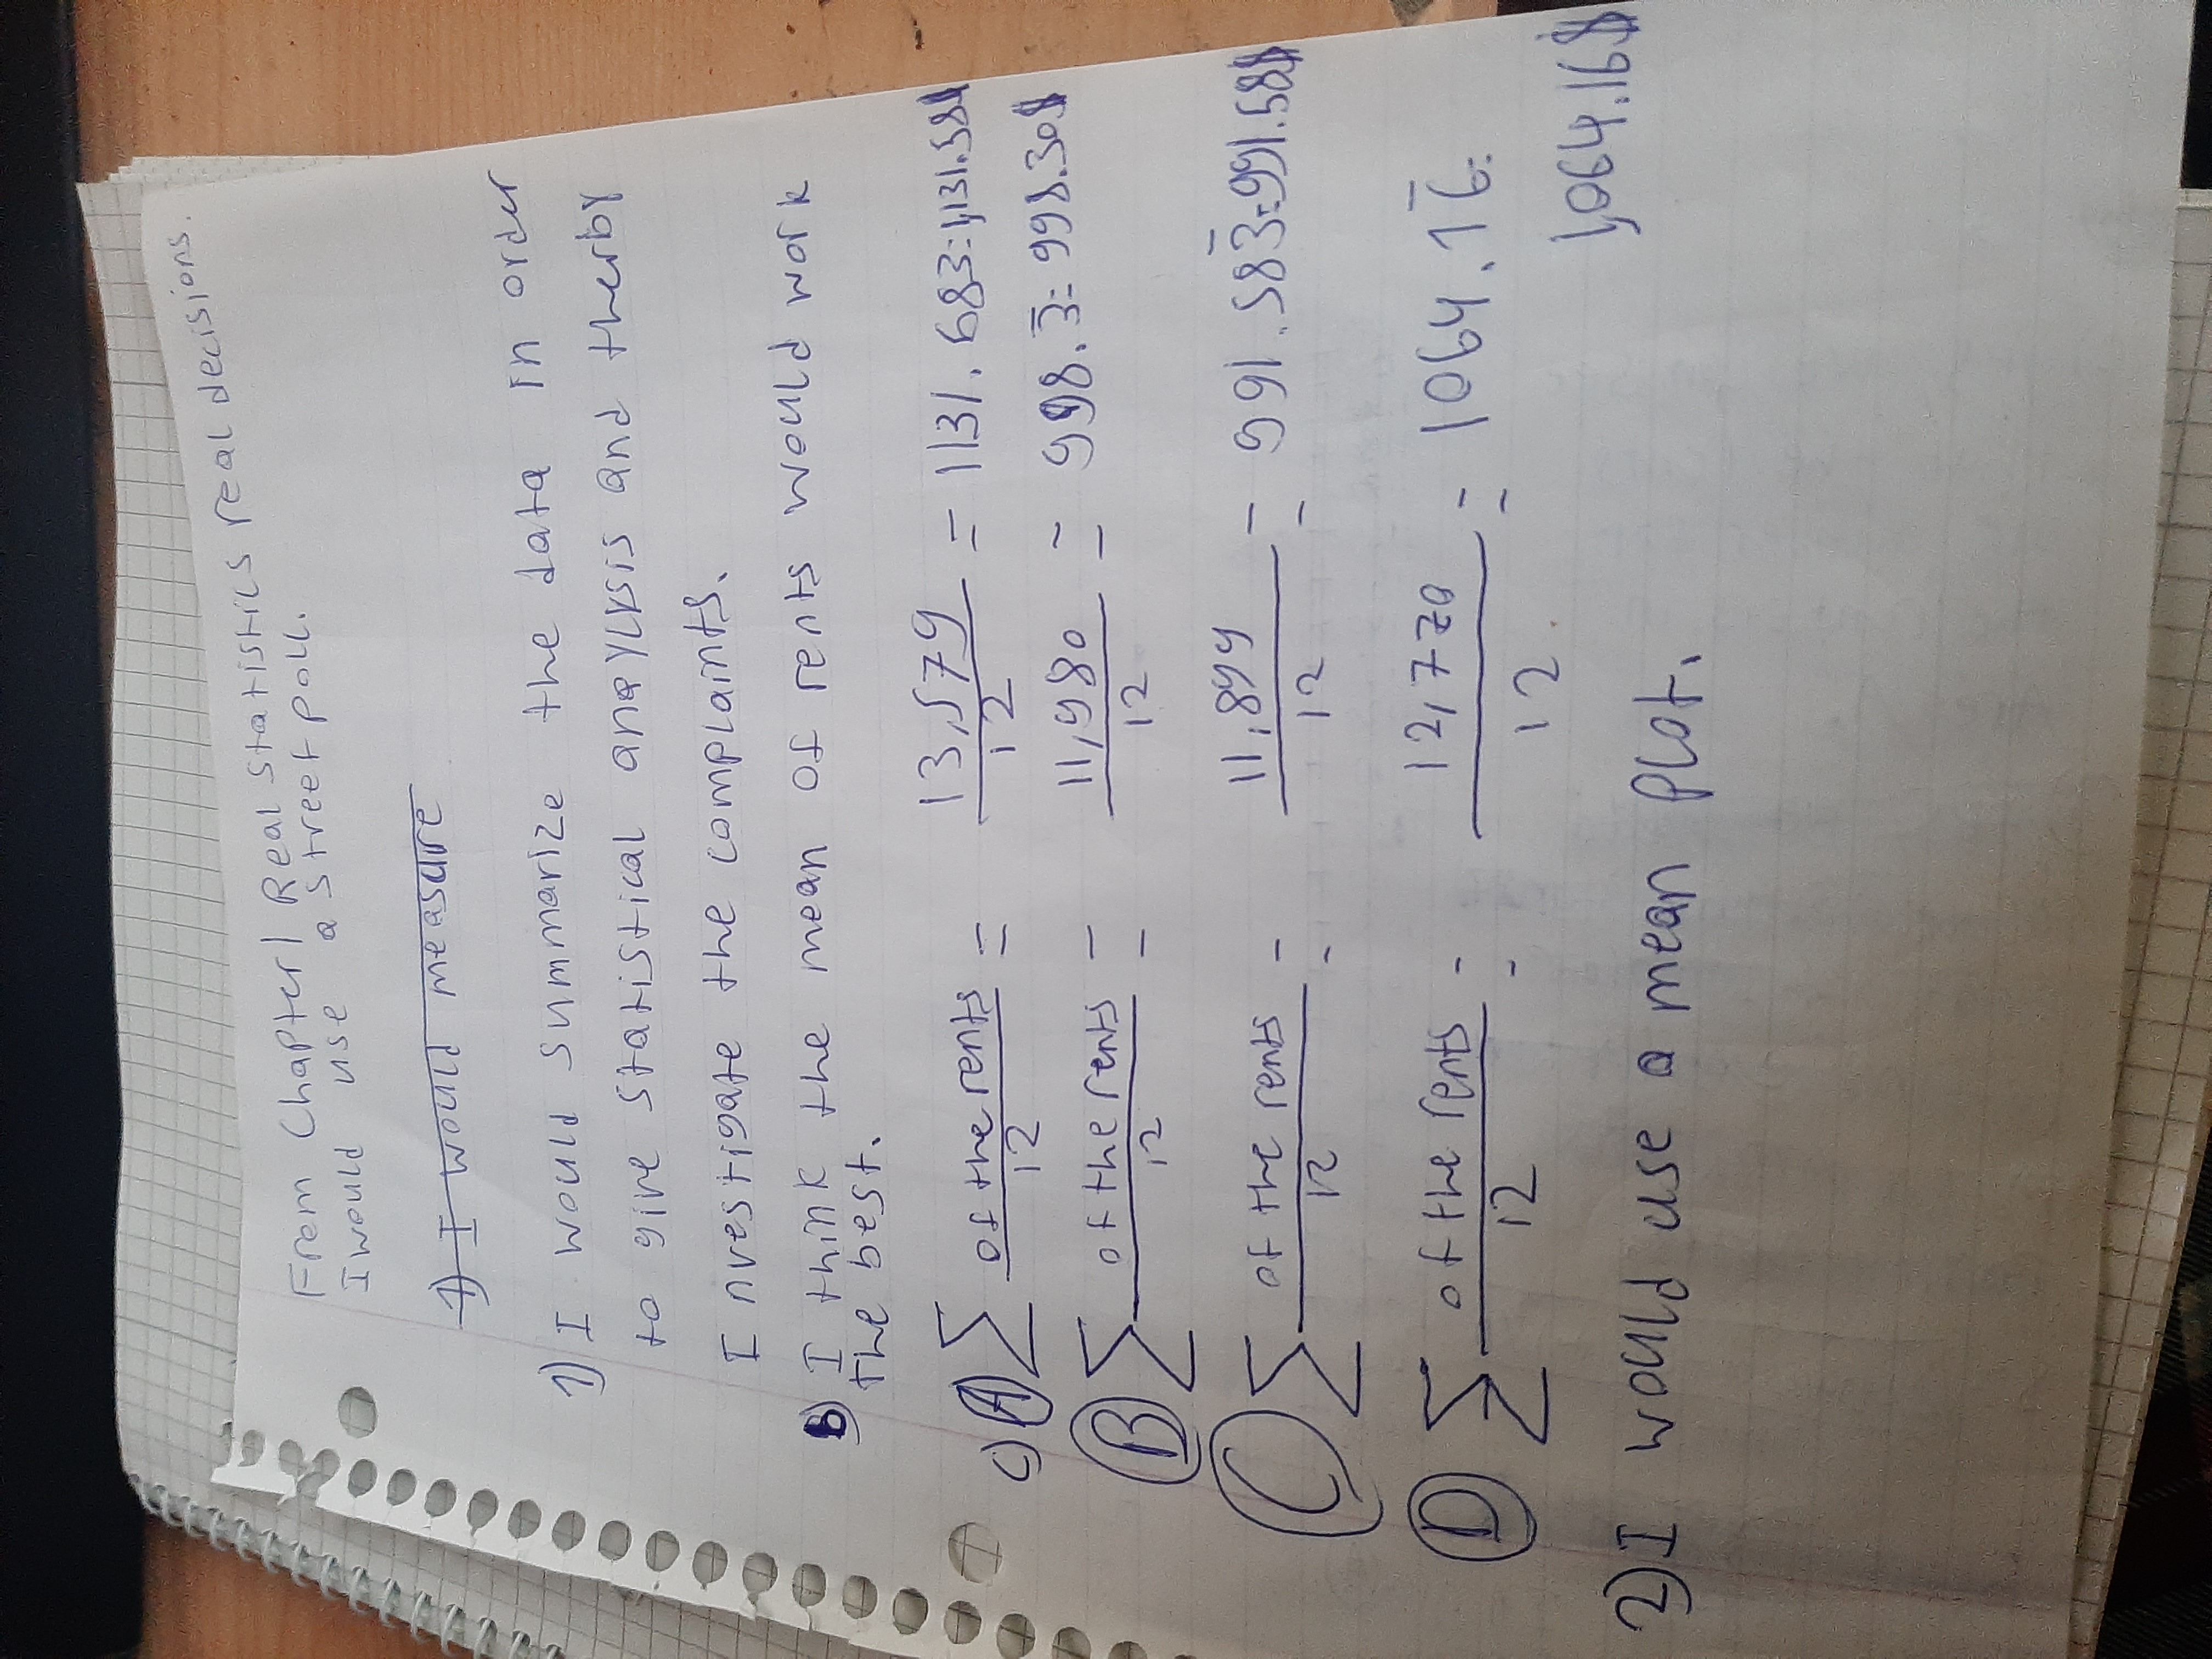 From Chapter 1 Real Statistics real decisions.
I would use a street poll.
1) I would measure
1) I would summarize the data in order
to give statistical anaylysis and therby
Investigate the complaints.
B) I think the mean of rents would work
the best.
c) A ∑ of the rents / 12 = 13,579 / 12 = 1131.683=1,131.58$
B ∑ of the rents / 12 = 11,980 / 12 = 998.3̅= 998.30$
C ∑ of the rents / 12 = 11,899 / 12 = 991.583̅=991.58$
D ∑ of the rents / 12 = 12,770 / 12 = 1064.16̅=
1,064.16$
2) I would use a mean plot.